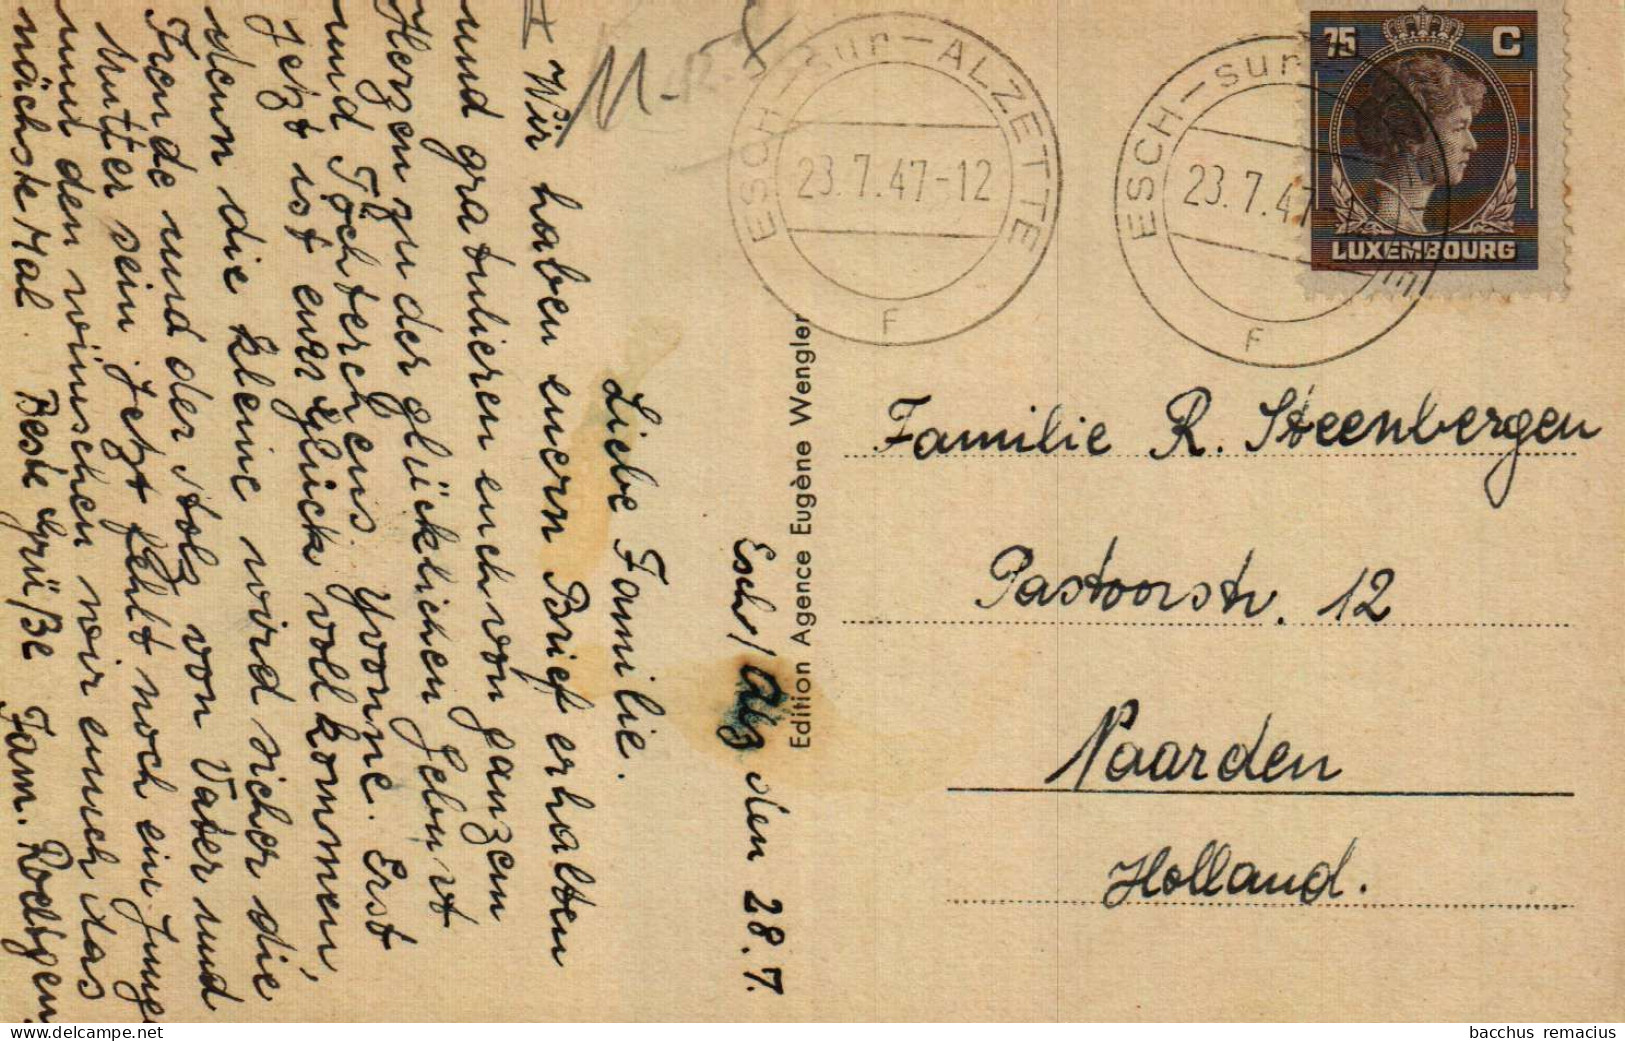 Esch/Alz den 28.7.
Liebe Familie.
Wir haben euern Brief erhalten
und gratulieren euch von ganzem
Herzen zu der glücklichen Geburt
und Töchterchens Yvonne. Erst
Jetzt ist euer Glück vollkommen,
denn die kleine wird sicher die
Freude und der stolz von Vater und
Mutter sein. Jetzt fehlt noch ein Junge
und den wünschen wir euch das
nächste Mal. Beste Grüße Fam. Roettgen
Edition Agence Eugène Wengler
ESCH-sur-ALZETTE
23.7.47-12
F
ESCH-sur-
23.7.47
F
75 C
LUXEMBOURG
Familie R. Steenbergen
Pastoorstr. 12
Naarden
Holland.
bacchus remacius